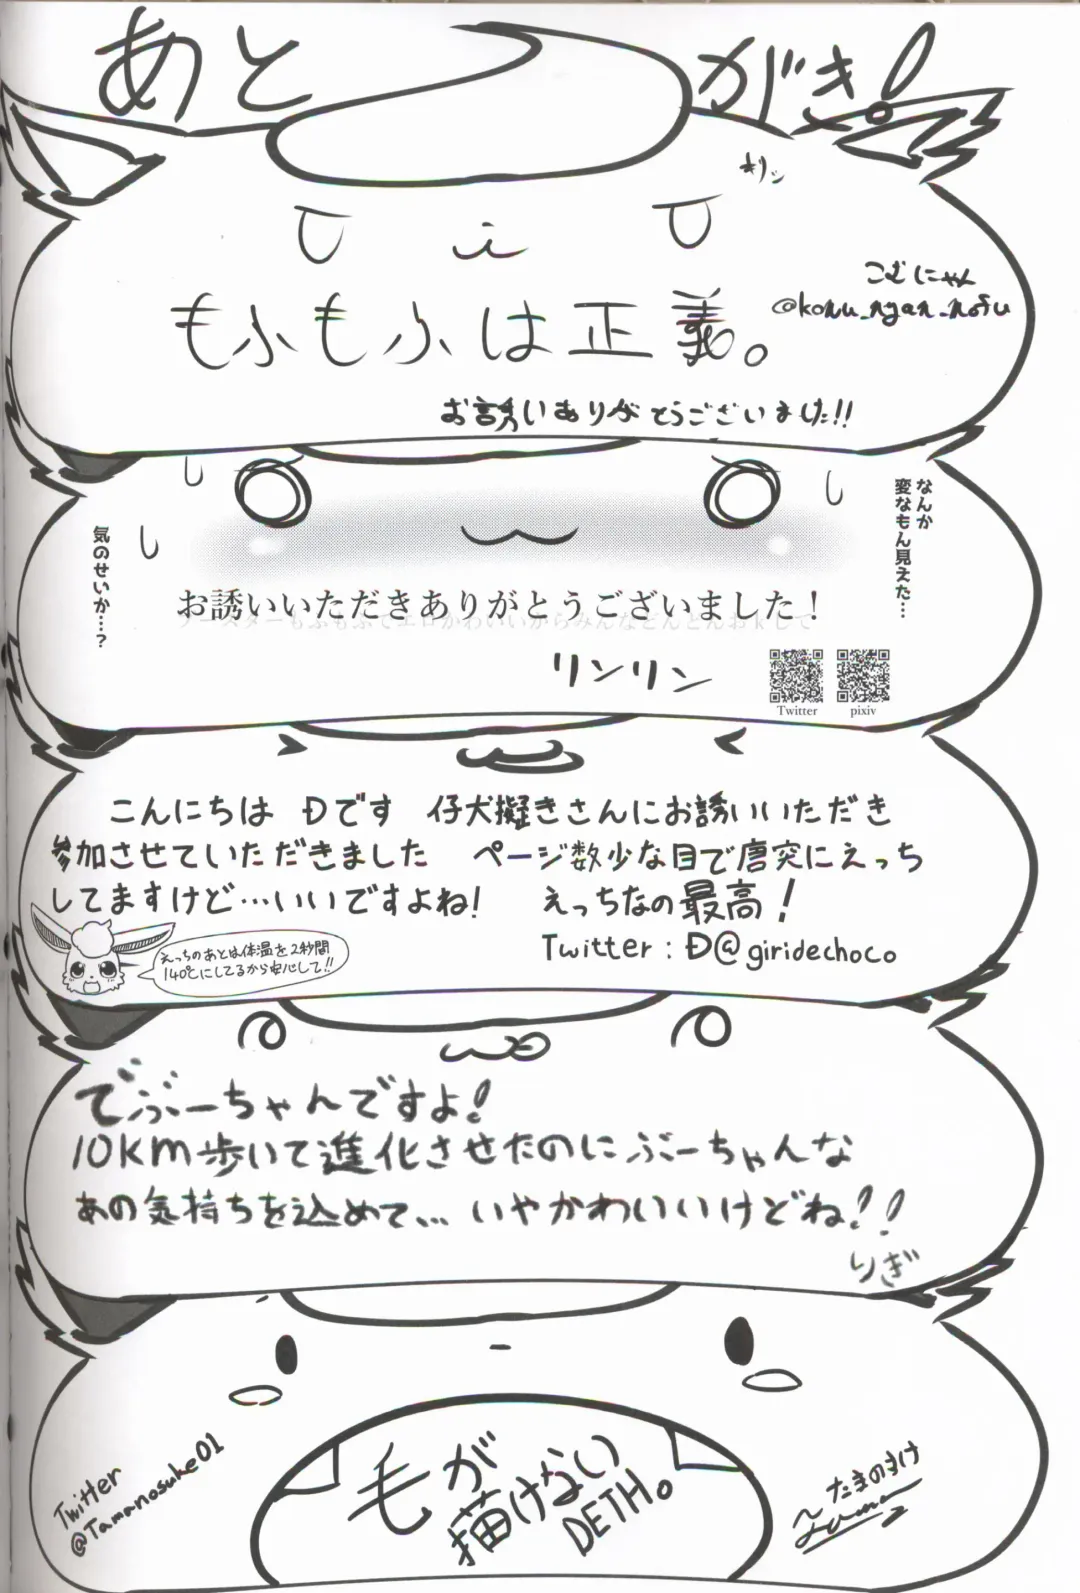 あとがき!
キリッ
こむにゃん
@komu_nyan_mofu
もふもふは正義。
お誘いありがとうございました!!
なんか
変なもん見えた…
気のせいか…?
お誘いいただきありがとうございました!
ブースターもふもふでエロかわいいからみんなどんどんおkして
リンリン
Twitter
pixiv
こんにちは Đです 仔犬擬きさんにお誘いいただき
参加させていただきました ページ数少な目で唐突にえっち
してますけど…いいですよね! えっちなの最高!
Twitter : Đ@giridechoco
えっちのあとは体温を2秒間
140℃にしてるから安心して!!
でぶーちゃんですよ!
10KM歩いて進化させたのにぶーちゃんな
あの気持ちを込めて… いやかわいいけどね!!
りぎ
Twitter
@Tamanosuke01
毛が
描けない
DETH。
たまのすけ